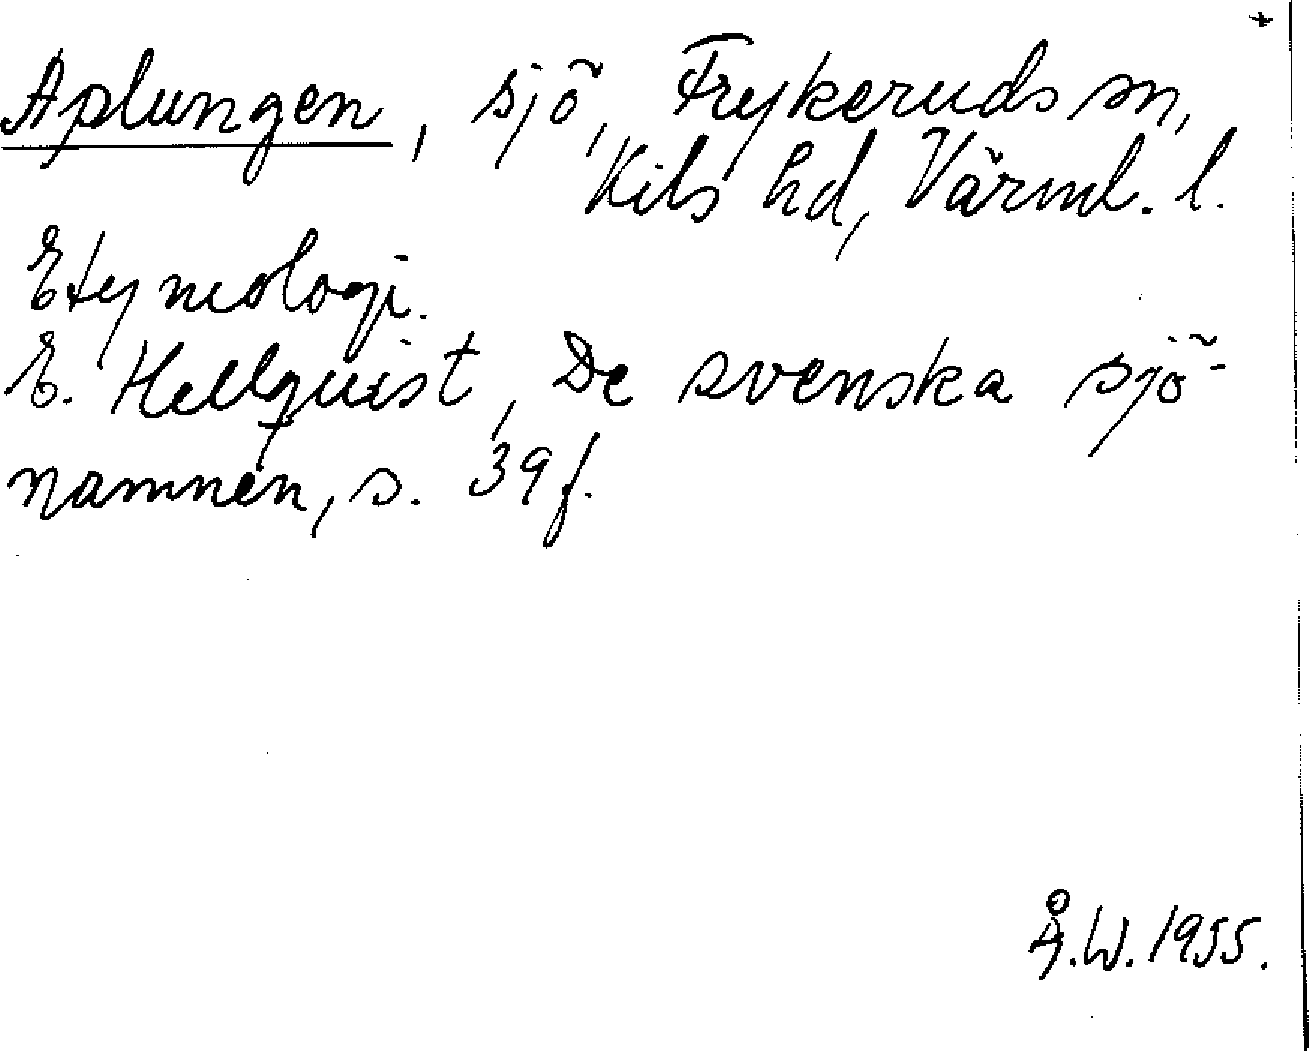 Aplungen, sjö, Frykeruds sn,
Kils hd, Värml. l.
Etymologi.
E. Hellquist, De svenska sjö-
namnen, s. 39 f.
Å.W. 1955.